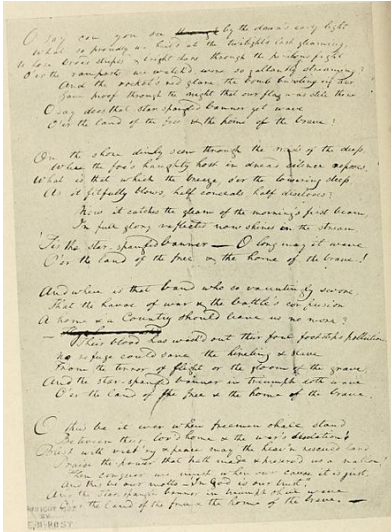 O say can you see ~~through~~ by the dawn's early light
What so proudly we hail'd at the twilight's last gleaming,
Whose broad stripes & bright stars through the perilous fight
O'er the ramparts we watch'd, were so gallantly streaming?
And the rocket's red glare, the bomb bursting in air,
Gave proof through the night that our flag was still there
O say does that star-spangled banner yet wave
O'er the land of the free & the home of the brave?
On the shore dimly seen through the mists of the deep,
Where the foe's haughty host in dread silence reposes,
What is that which the breeze, o'er the towering steep,
As it fitfully blows, half conceals, half discloses?
Now it catches the gleam of the morning's first beam,
In full glory reflected now shines in the stream,
'Tis the star-spangled banner — O long may it wave
O'er the land of the free & the home of the brave!
And where is that band who so vauntingly swore,
That the havoc of war & the battle's confusion
A home & a Country should leave us no more?
—
Their blood has wash'd out their foul footsteps pollution
No refuge could save the hireling & slave
From the terror of flight or the gloom of the grave,
And the star-spangled banner in triumph doth wave
O'er the land of the free & the home of the brave.
O thus be it ever when freemen shall stand
Between their lov'd home & the war's desolation!
Blest with vict'ry & peace may the heav'n rescued land
Praise the power that hath made & preserv'd us a nation!
Then conquer we must, when our cause it is just,
And this be our motto — In God is our trust,
And the star-spangled banner in triumph shall wave
O'er the land of the free & the home of the brave. —